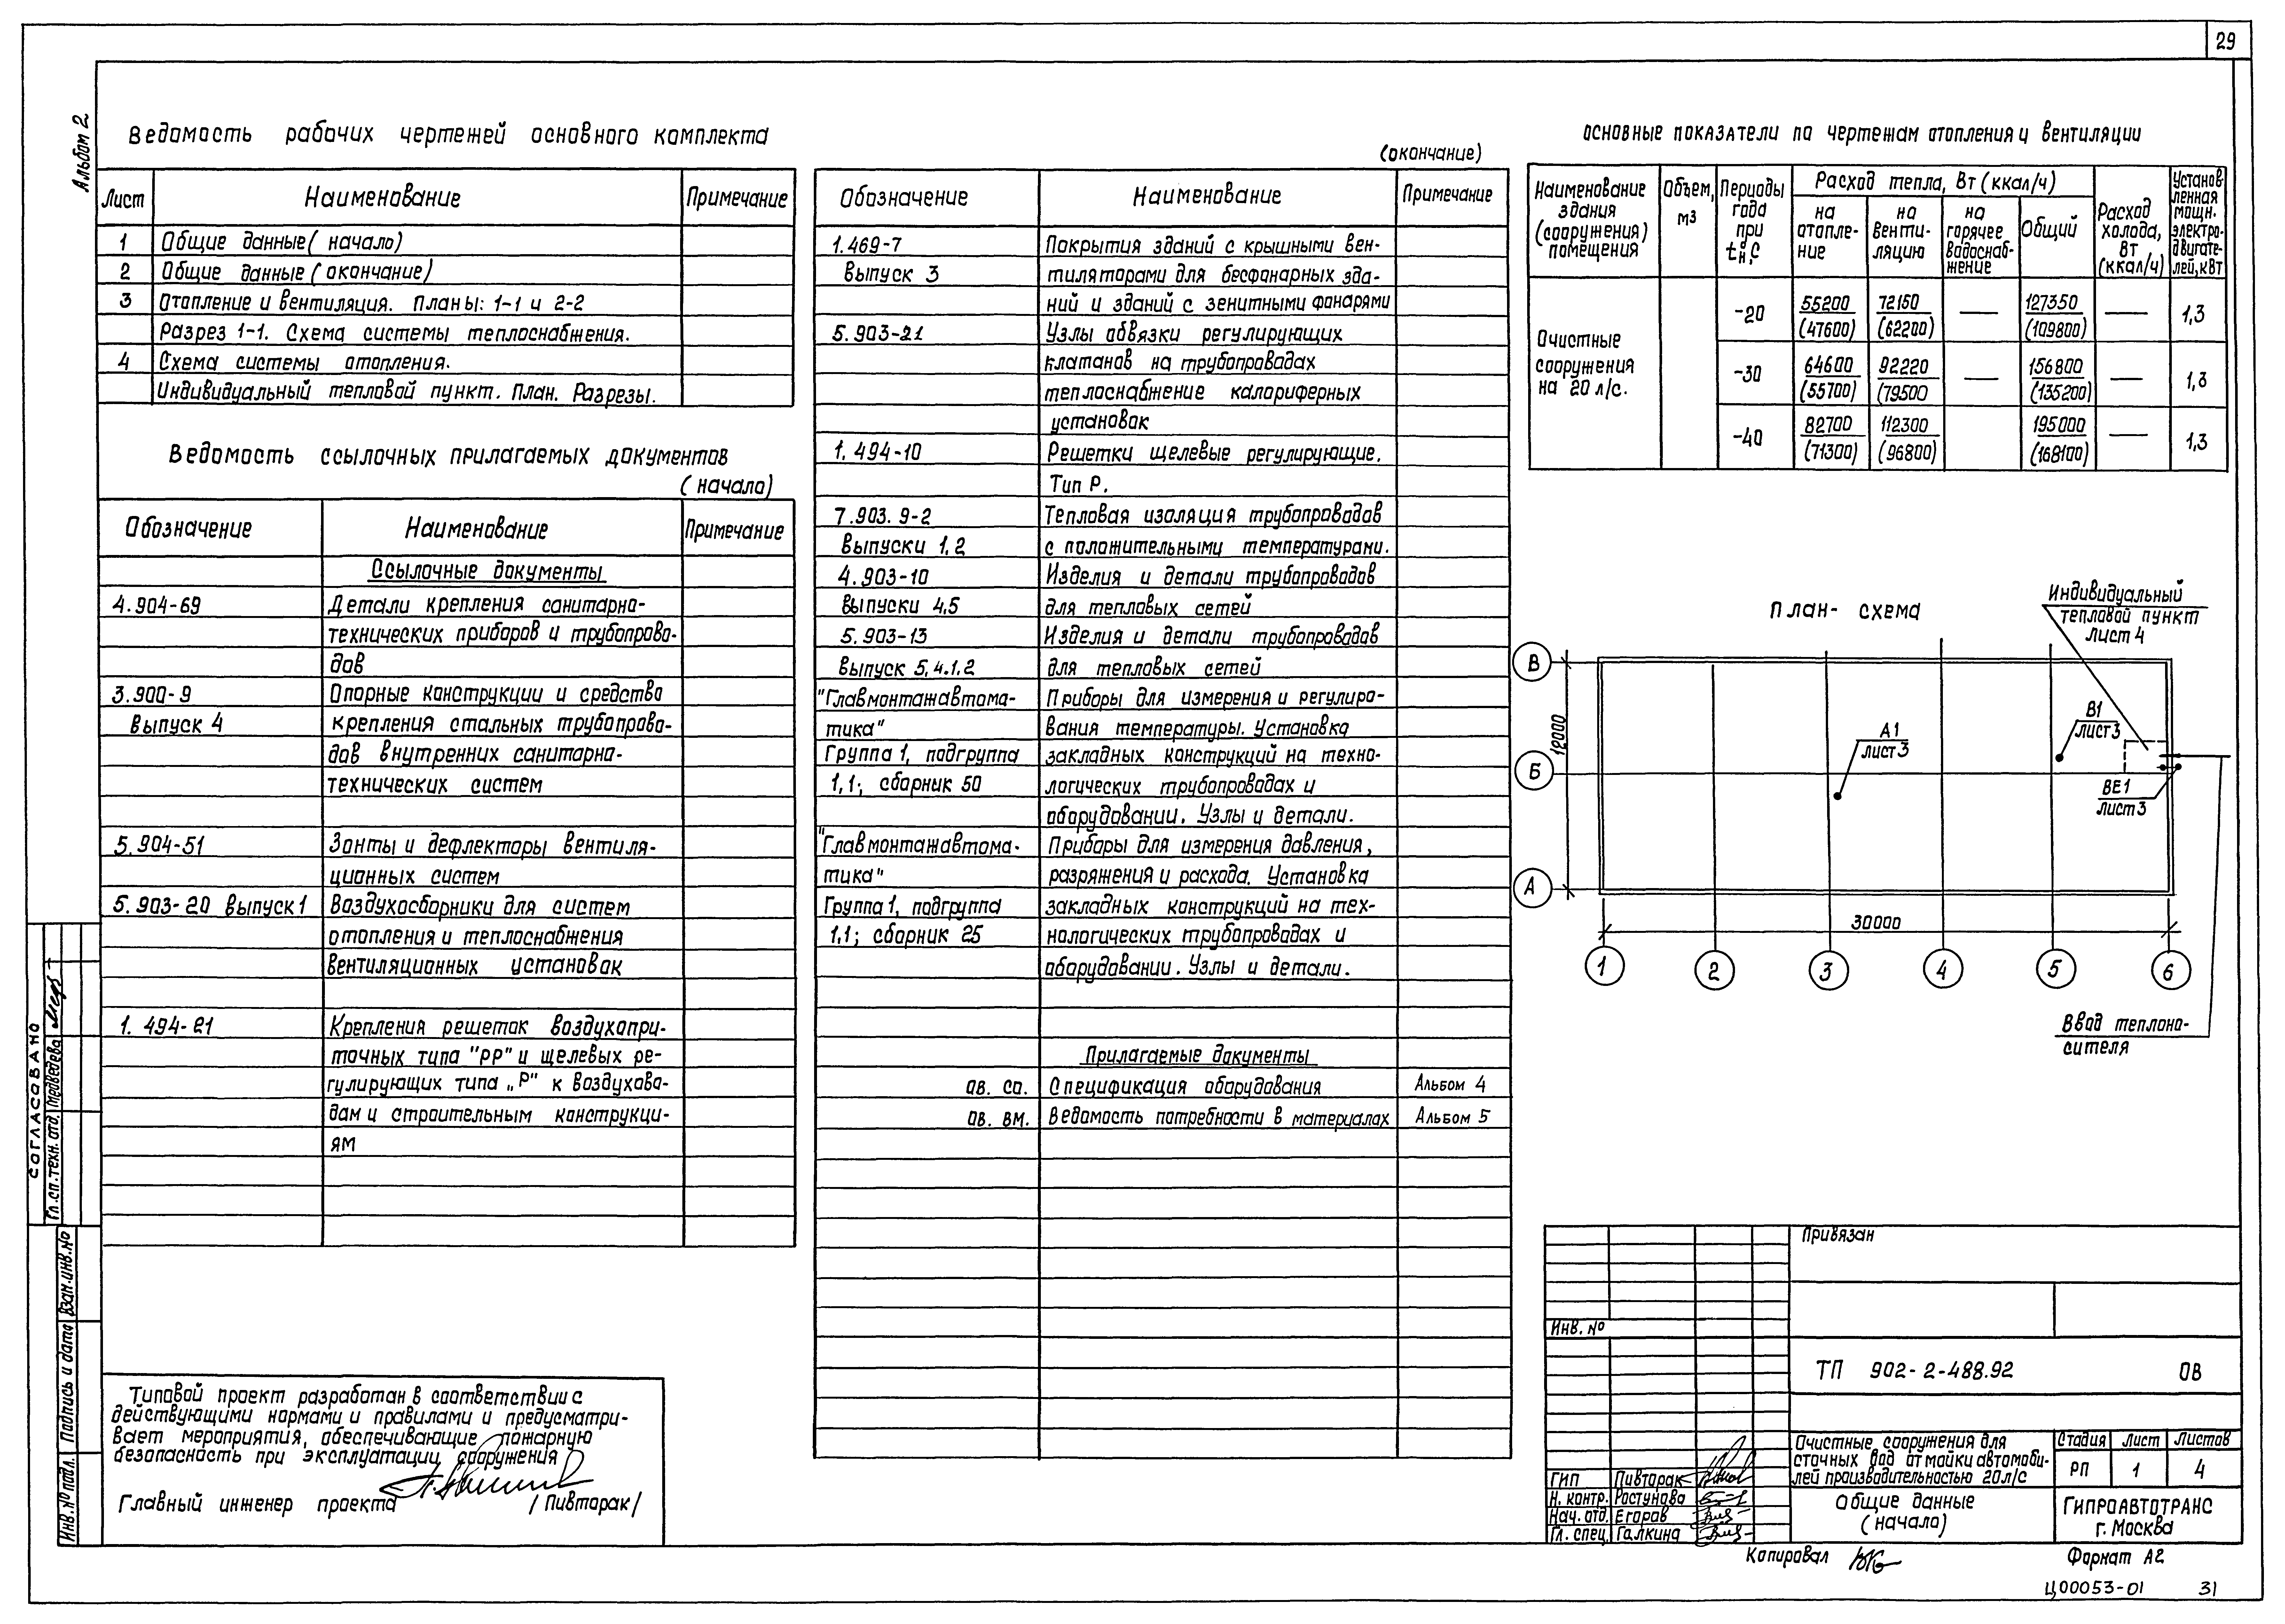 29
Альбом 2
Ведомость рабочих чертежей основного комплекта
Лист Наименование Примечание
1 Общие данные (начало)
2 Общие данные (окончание)
3 Отопление и вентиляция. Планы: 1-1 и 2-2
Разрез 1-1. Схема системы теплоснабжения.
4 Схема системы отопления.
Индивидуальный тепловой пункт. План. Разрезы.
Ведомость ссылочных прилагаемых документов
(начало)
Обозначение Наименование Примечание
Ссылочные документы
4.904-69 Детали крепления санитарно-
технических приборов и трубопрово-
дов
3.900-9 Опорные конструкции и средства
Выпуск 4 крепления стальных трубопрово-
дов внутренних санитарно-
технических систем
5.904-51 Зонты и дефлекторы вентиля-
ционных систем
5.903-20 выпуск 1 Воздухосборники для систем
отопления и теплоснабжения
вентиляционных установок
1. 494-21 Крепления решеток воздухопри-
точных типа "РР" и щелевых ре-
гулирующих типа „Р" к воздухово-
дам и строительным конструкци-
ям
Типовой проект разработан в соответствии с
действующими нормами и правилами и предусматри-
вает мероприятия, обеспечивающие пожарную
безопасность при эксплуатации сооружения
Главный инженер проекта /Пивторак/
(окончание)
Обозначение Наименование Примечание
1.469-7 Покрытия зданий с крышными вен-
Выпуск 3 тиляторами для бесфонарных зда-
ний и зданий с зенитными фонарями
5.903-21 Узлы обвязки регулирующих
клапанов на трубопроводах
теплоснабжение калориферных
установок
1. 494-10 Решетки щелевые регулирующие.
Тип Р.
7.903. 9-2 Тепловая изоляция трубопроводов
Выпуски 1,2 с положительными температурами.
4.903-10 Изделия и детали трубопроводов
Выпуски 4,5 для тепловых сетей
5.903-13 Изделия и детали трубопроводов
Выпуск 5,4.1.2 для тепловых сетей
"Главмонтажавтома- Приборы для измерения и регулиро-
тика" вания температуры. Установка
Группа 1, подгруппа закладных конструкций на техно-
1,1; сборник 50 логических трубопроводах и
оборудовании. Узлы и детали.
"Главмонтажавтома- Приборы для измерения давления,
тика" разряжения и расхода. Установка
Группа 1, подгруппа закладных конструкций на тех-
1,1; сборник 25 нологических трубопроводах и
оборудовании. Узлы и детали.
Прилагаемые документы
ов. со. Спецификация оборудования Альбом 4
ов. вм. Ведомость потребности в материалах Альбом 5
Основные показатели по чертежам отопления и вентиляции
Наименование здания (сооружения) помещения Объем, м3 Периоды года при tн,°С Расход тепла, Вт (ккал/ч) Расход холода, Вт (ккал/ч) Установленная мощн. электродвигателей, кВт
на отопление на вентиляцию на горячее водоснабжение Общий
Очистные сооружения на 20 л/с.
-20 55200 (47600) 72150 (62200) — 127350 (109800) — 1,3
-30 64600 (55700) 92220 (79500 — 156800 (135200) — 1,3
-40 82700 (71300) 112300 (96800) 195000 (168100) — 1,3
План-схема
Индивидуальный
тепловой пункт
лист 4
В
Б
А
12000
А1
лист 3
В1
лист 3
ВЕ1
лист 3
30000
1 2 3 4 5 6
Ввод теплоно-
сителя
Привязан
Инв. №
ТП 902-2-488.92 ОВ
Очистные сооружения для
сточных вод от мойки автомоби-
лей производительностью 20 л/с
Стадия Лист Листов
РП 1 4
Общие данные
(начало)
ГИПРОАВТОТРАНС
г. Москва
ГИП Пивторак
Н. контр. Растунова
Нач. отд. Егоров
Гл. спец. Галкина
Копировал
Формат А2
Ц00053-01 31
СОГЛАСОВАНО
Гл. сп. техн. отд. Медведева
Взам. инв. №
Подпись и дата
Инв. № подл.